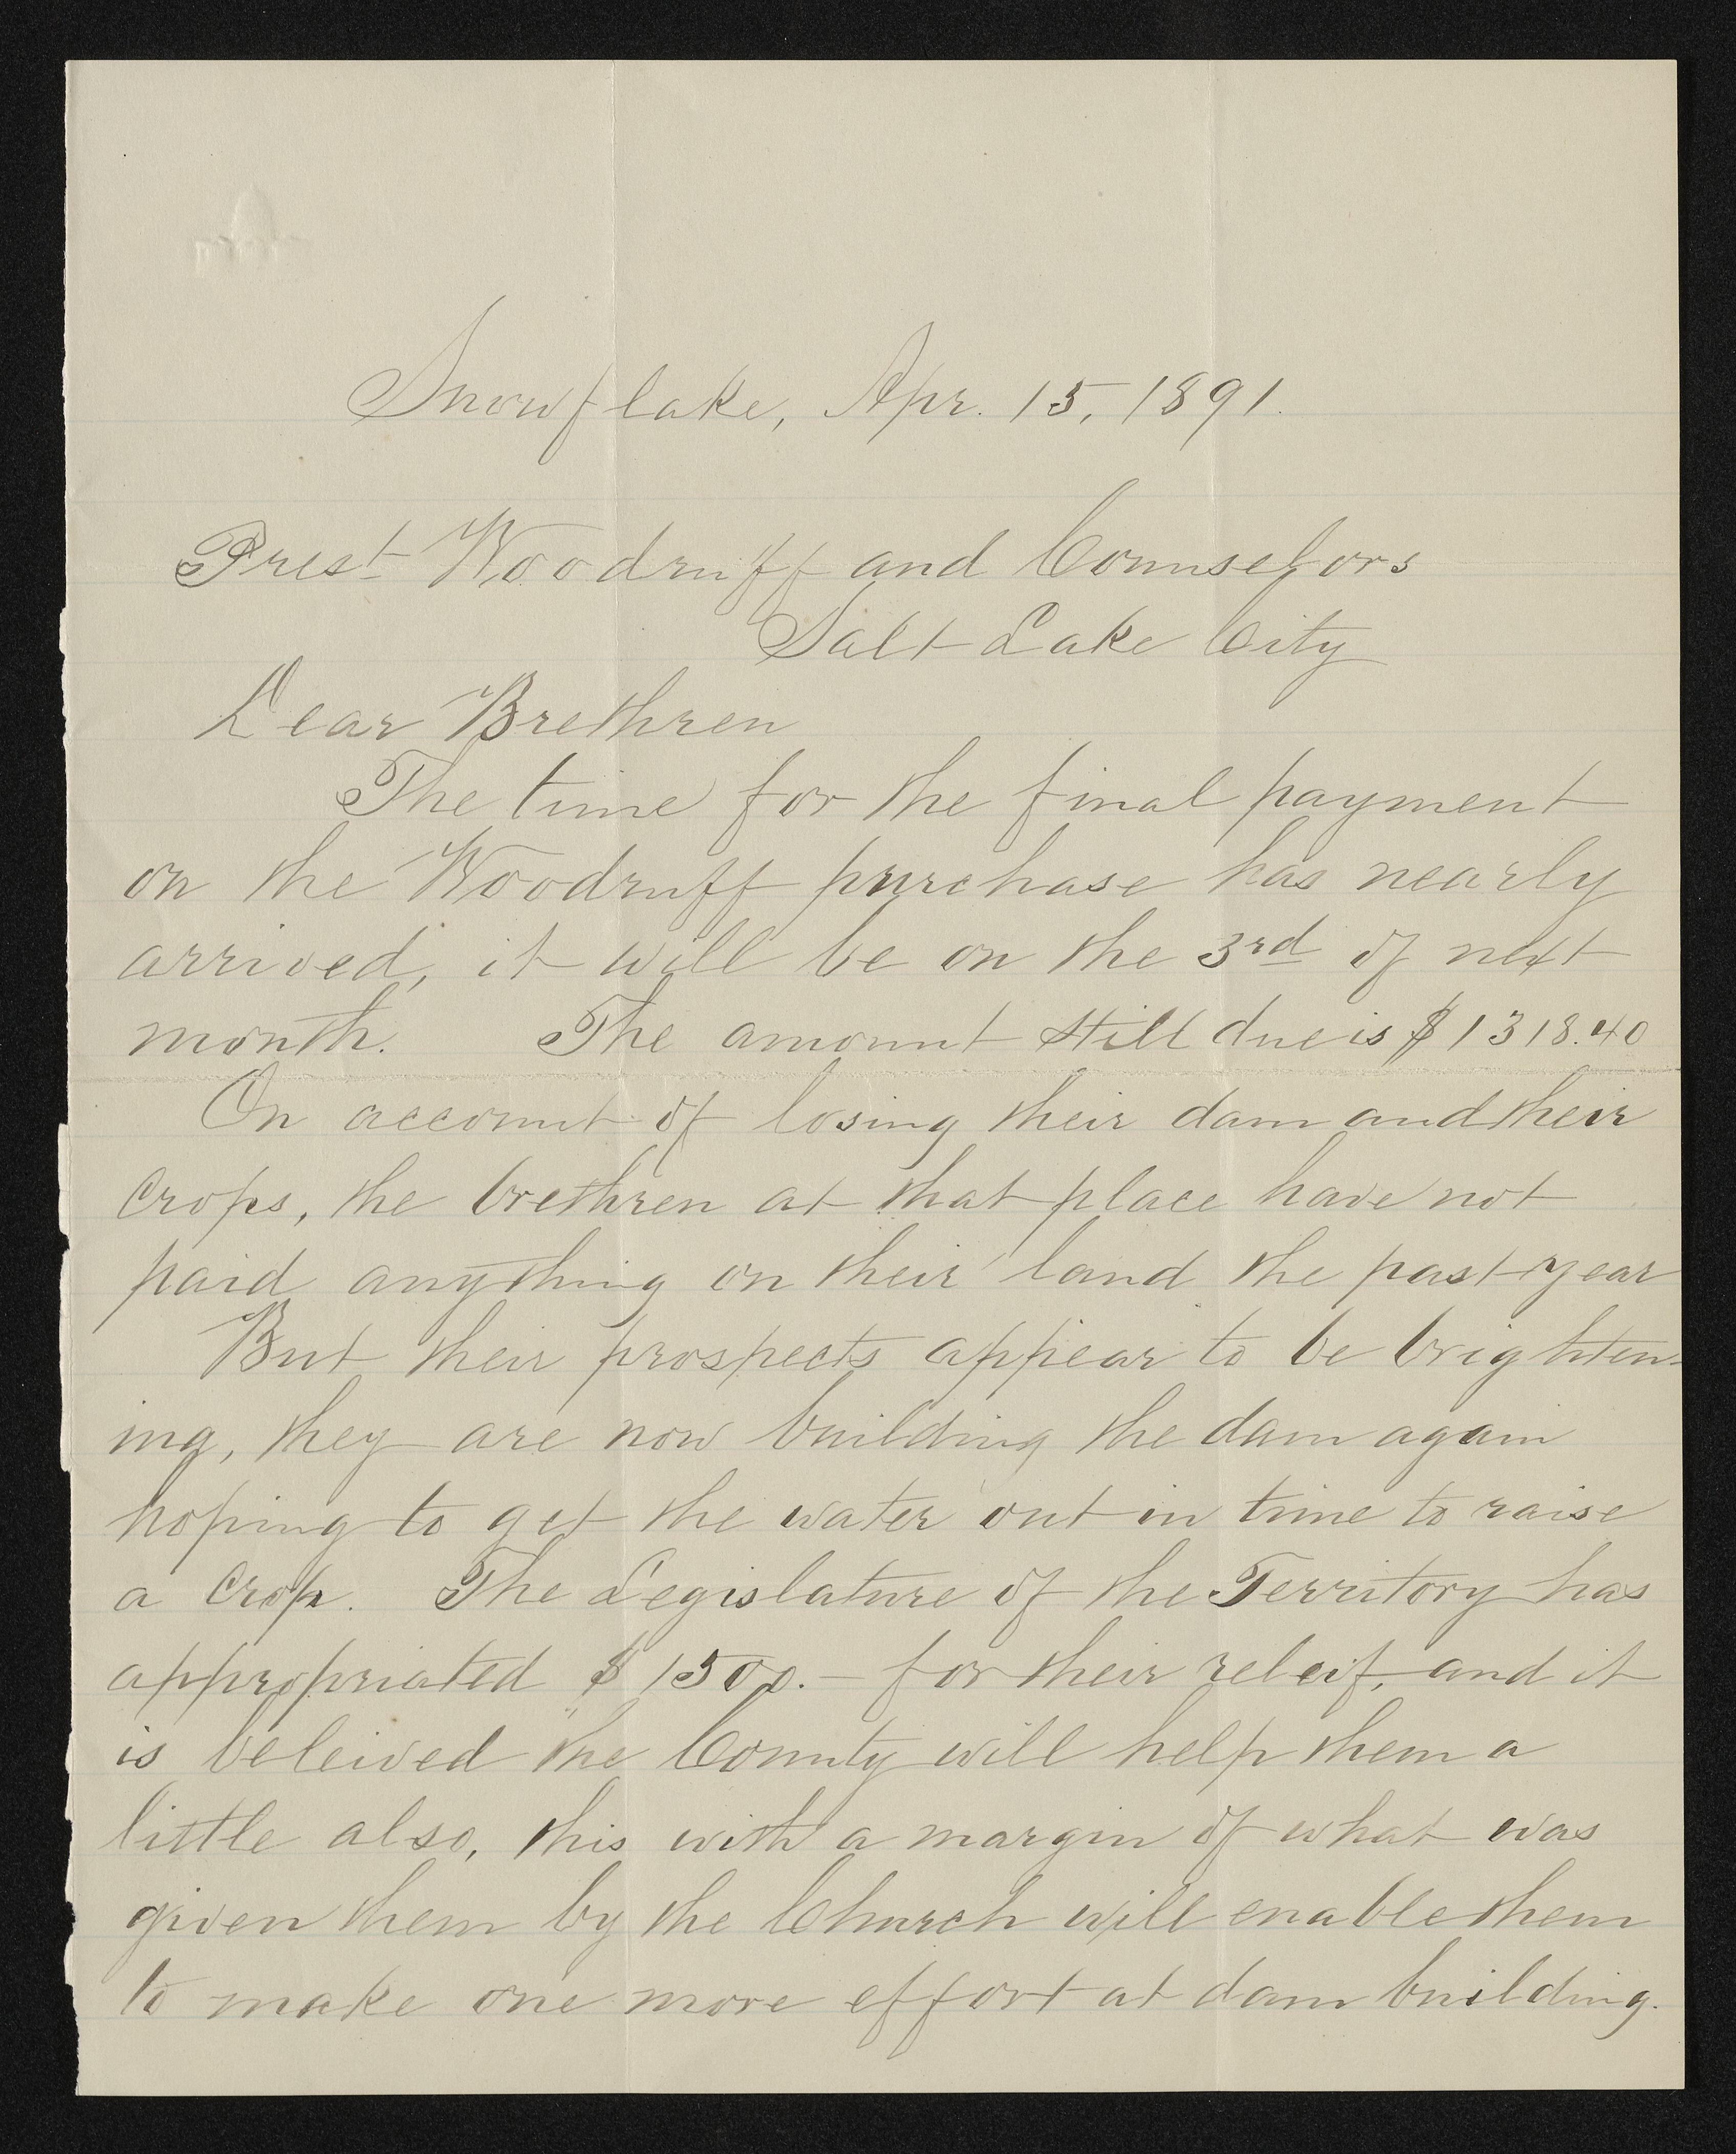 Snowflake, Apr. 15, 1891.
Prest Woodruff and Counselors
Salt Lake City
Dear Brethren
The time for the final payment
on the Woodruff purchase has nearly
arrived, it will be on the 3rd of next
month. The amount still due is $1318.40
On account of losing their dam and their
crops, the brethren at that place have not
paid anything on their land the past year
But their prospects appear to be brighten-
ing, they are now building the dam again
hoping to get the water out in time to raise
a crop. The Legislature of the Territory has
appropriated $1500.— for their releif, and it
is beleived the County will help them a
little also, this with a margin of what was
given them by the Church will enable them
to make one more effort at dam building.